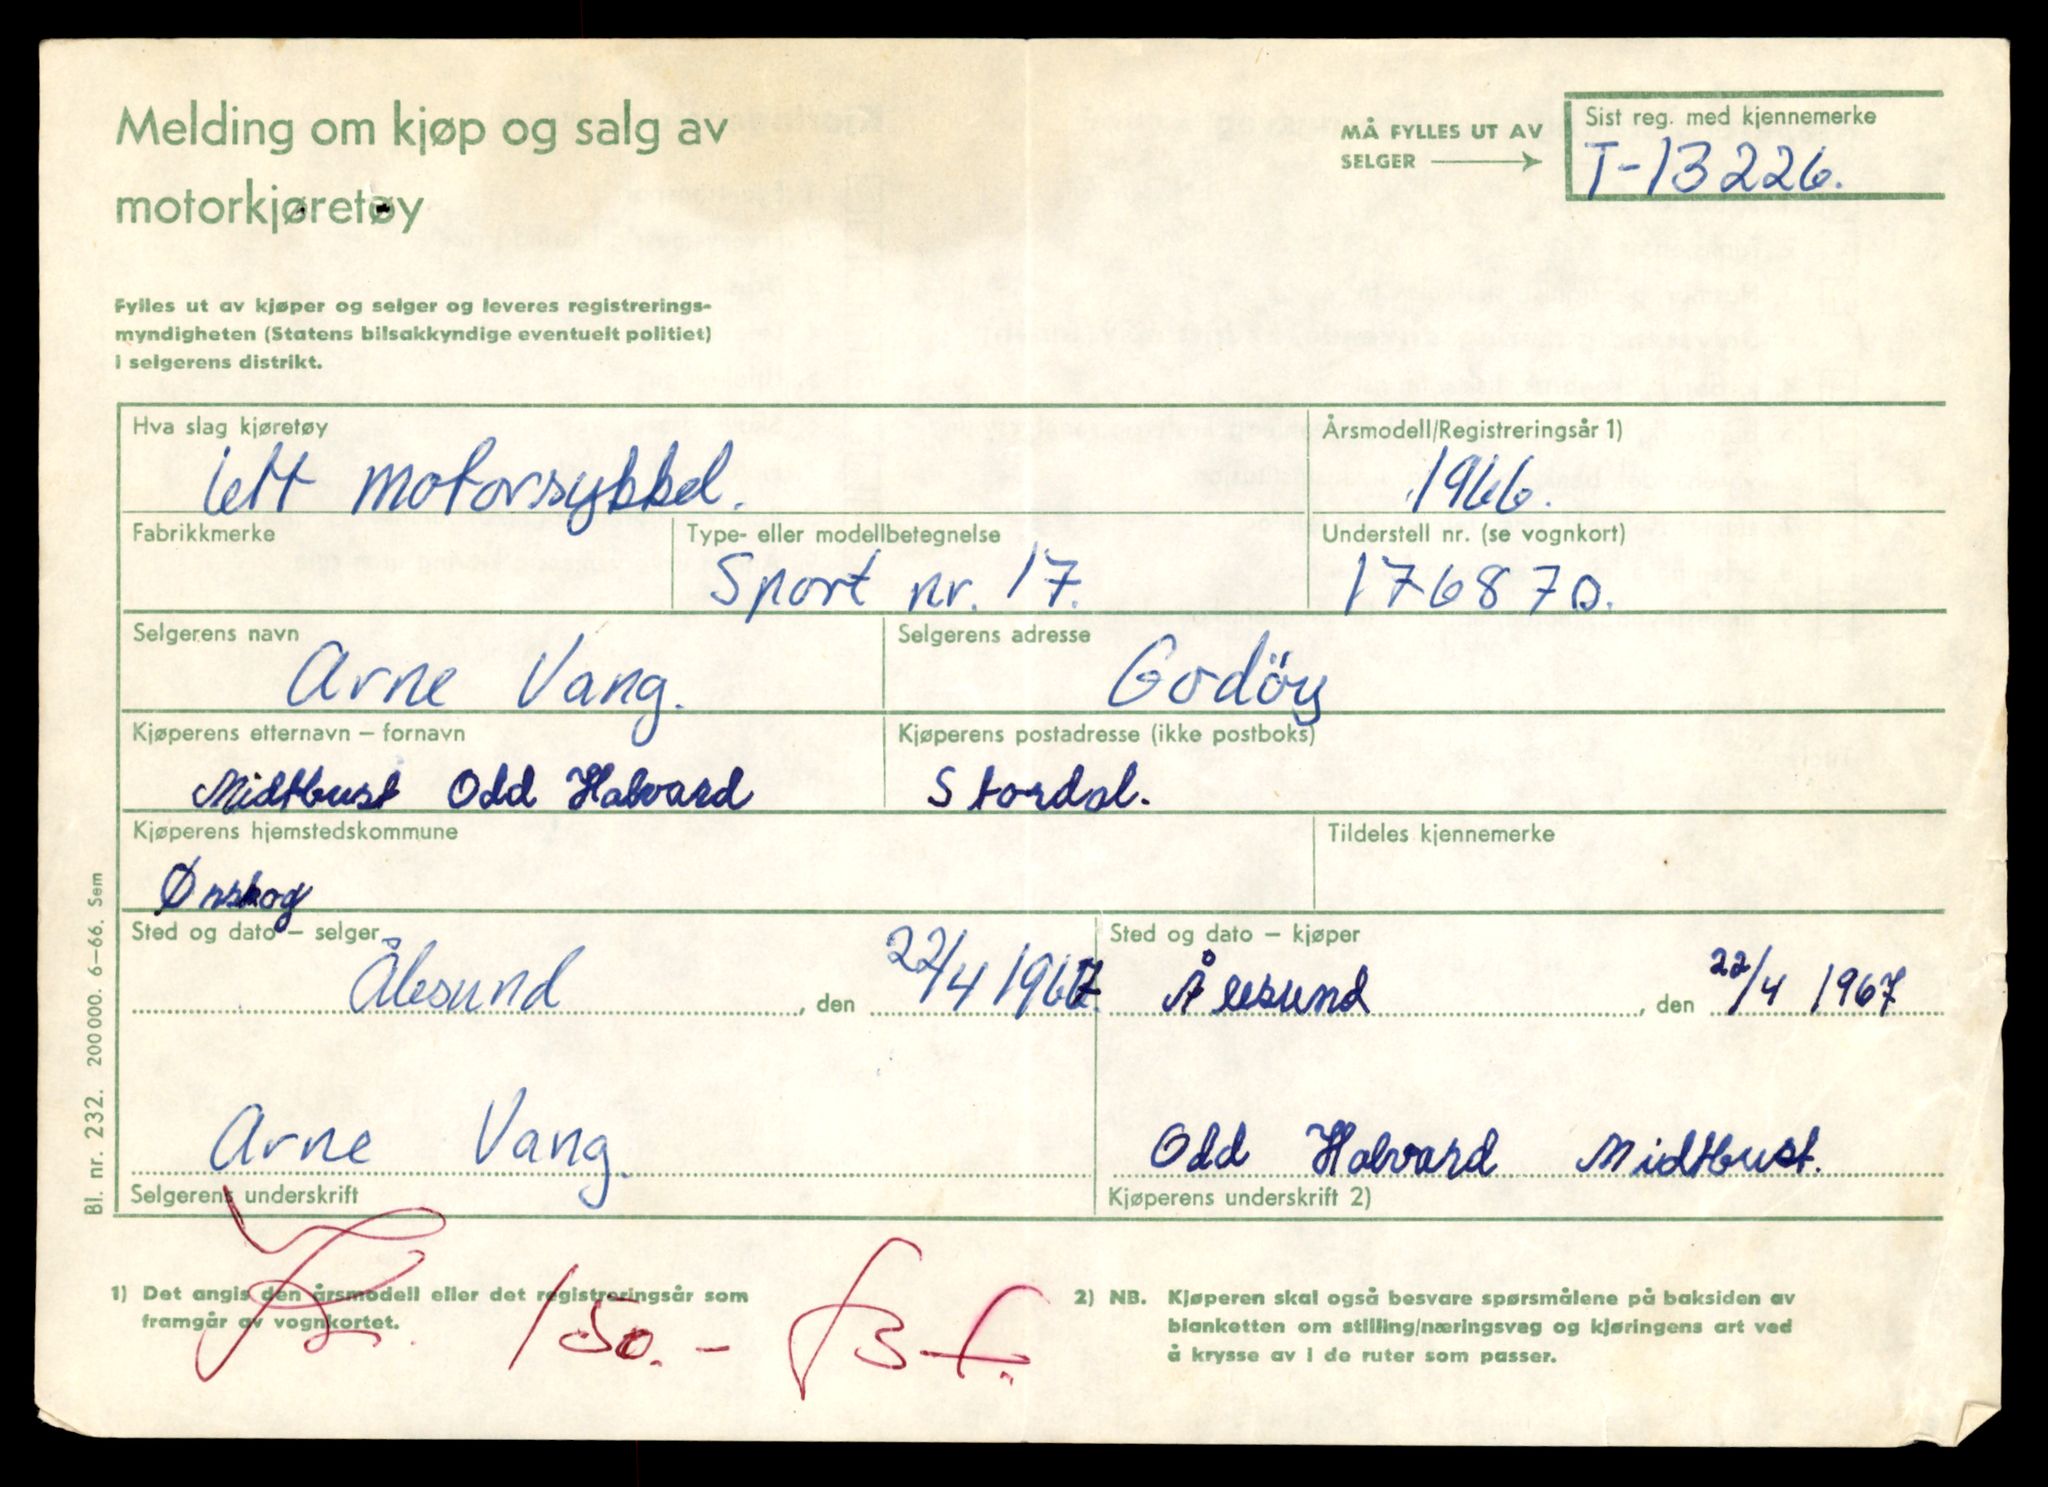 Melding om kjøp og salg av
motorkjøretøy
MÅ FYLLES UT AV
SELGER
Sist reg. med kjennemerke
T-13226.
Fylles ut av kjøper og selger og leveres registrerings-
myndigheten (Statens bilsakkyndige eventuelt politiet)
i selgerens distrikt.
Hva slag kjøretøy
lett motorsykkel.
Årsmodell/Registreringsår 1)
1966.
Fabrikkmerke
Type- eller modellbetegnelse
Sport nr. 17.
Understell nr. (se vognkort)
176870.
Selgerens navn
Arne Vang.
Selgerens adresse
Godöy
Kjøperens etternavn – fornavn
Midtbust Odd Halvard
Kjøperens postadresse (ikke postboks)
Stordal.
Kjøperens hjemstedskommune
Ørskog
Tildeles kjennemerke
Sted og dato – selger
Ålesund, den 22/4 1967.
Sted og dato – kjøper
Ålesund, den 22/4 1967
Arne Vang.
Selgerens underskrift
Odd Halvard Midtbust.
Kjøperens underskrift 2)
Bl. nr. 232. 200 000. 6–66. Sem
1) Det angis den årsmodell eller det registreringsår som
framgår av vognkortet.
150.-
2) NB. Kjøperen skal også besvare spørsmålene på baksiden av
blanketten om stilling/næringsveg og kjøringens art ved
å krysse av i de ruter som passer.